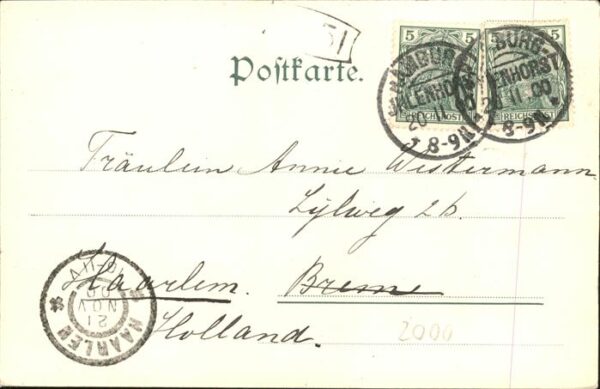 51
Postkarte.
5 5
REICHSPOST REICHSPOST
HAMBURG-
UHLENHORST
20 11 00
* 8-9N.
BURG-
ENHORST
20.11.00
8-9N. *
Fräulein Annie Westermann
Zijlweg 26.
Haarlem. Breme
Holland.
HAARLEM
21
NOV
00
2000